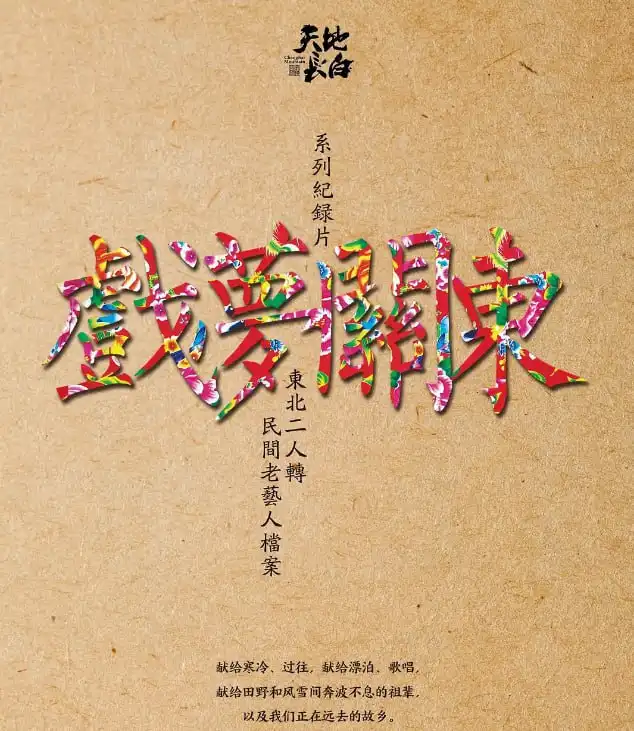 天地
長白
Changbai
Mountain
系列紀録片
戲夢關東
東北二人轉
民間老藝人檔案
献给寒冷、过往，献给漂泊、歌唱，
献给田野和风雪间奔波不息的祖辈，
以及我们正在远去的故乡。